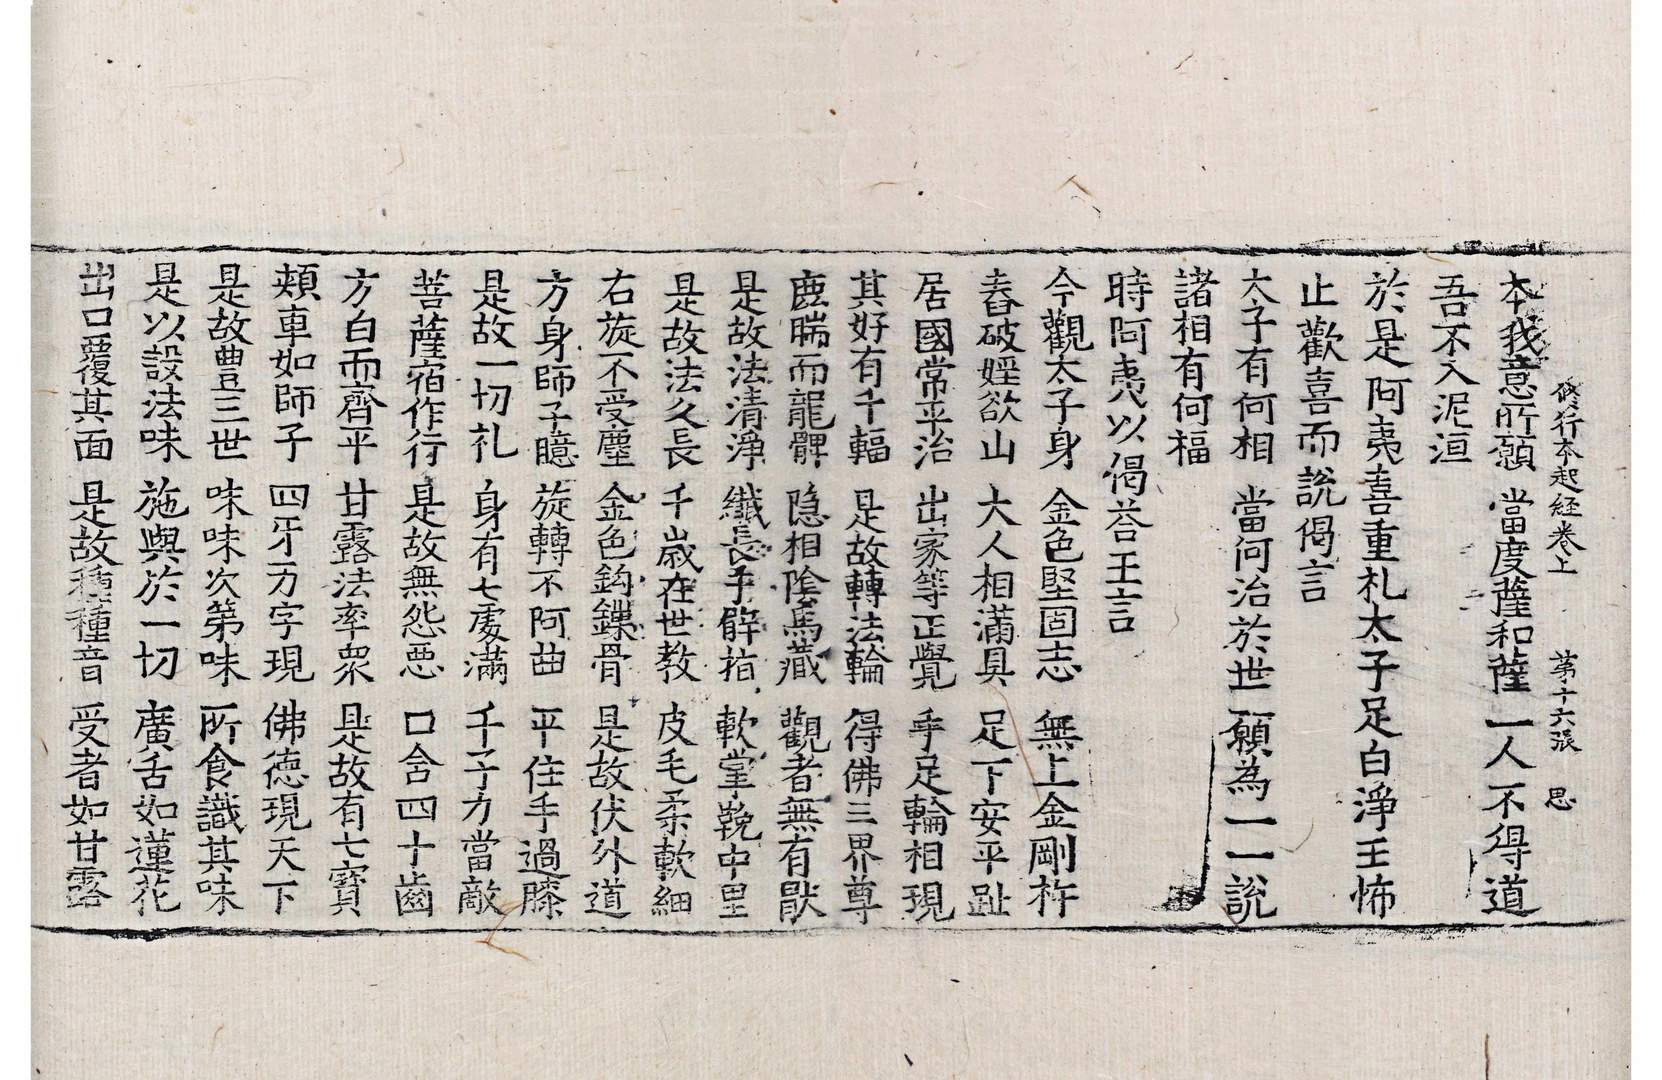 修行本起経卷上 苐十六張 思
本我意所願 當度薩和薩 一人不得道
吾不入泥洹
於是阿夷喜重礼太子足白淨王怖
止歡喜而說偈言
太子有何相 當何治於世 願為一一說
諸相有何福
時阿夷以偈荅王言
今觀太子身 金色堅固志 無上金剛杵
舂破婬欲山 大人相滿具 足下安平趾
居國常平治 出家等正覺 手足輪相現
其好有千輻 是故轉法輪 得佛三界尊
鹿腨而龍髀 隱相陰馬藏 觀者無有猒
是故法清淨 纖長手臂指 軟掌鞔中里
是故法久長 千歲在世教 皮毛柔軟細
右旋不受塵 金色鈎鏁骨 是故伏外道
方身師子臆 旋轉不阿曲 平住手過膝
是故一切礼 身有七處滿 千子力當敵
菩薩宿作行 是故無怨惡 口含四十齒
方白而齊平 甘露法率眾 是故有七寶
頰車如師子 四牙万字現 佛德現天下
是故豊三世 味味次第味 所食識其味
是以設法味 施與於一切 廣舌如蓮花
出口覆其面 是故種種音 受者如甘露